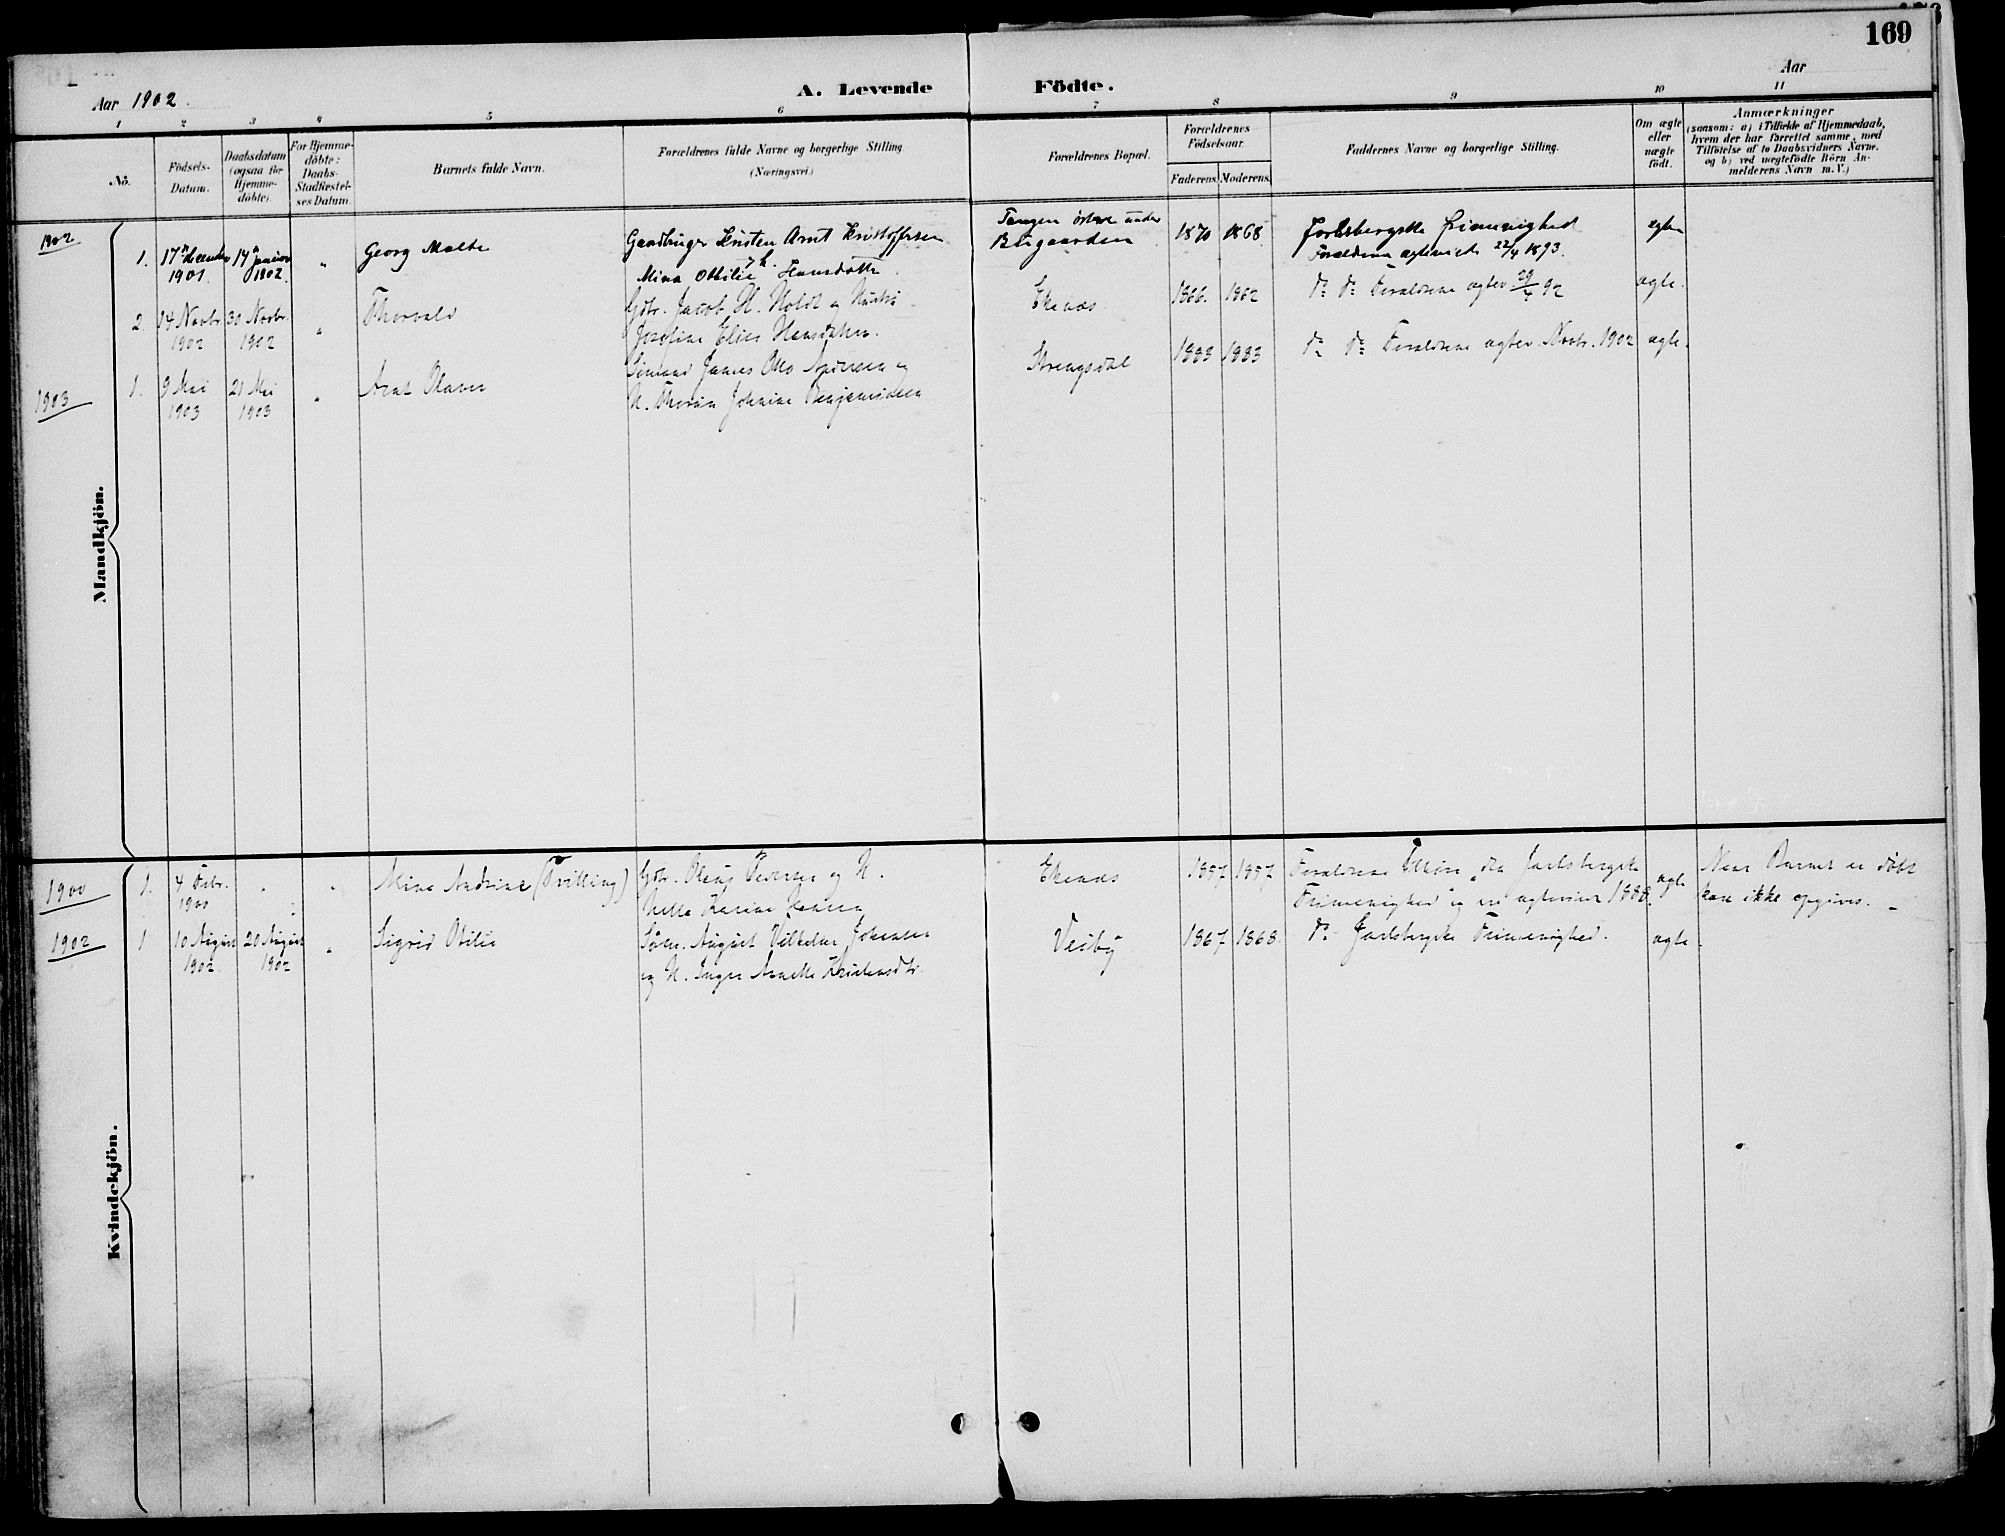 169
Aar 1902.
A. Levende Födte.
Aar
1 2 3 4 5 6 7 8 9 10 11
No.
Födsels-Datum.
Daabsdatum (ogsaa for Hjemme-döbte).
For Hjemme-döbte: Daabs-Stadfæstel-ses Datum.
Barnets fulde Navn.
Forældrenes fulde Navne og borgerlige Stilling.
(Næringsvei.)
Forældrenes Bopæl.
Forældrenes Födselsaar.
Faderens. Moderens.
Faddernes Navne og borgerlige Stilling.
Om ægte eller uægte födt.
Anmærkninger
(saasom: a) i Tilfælde af Hjemmedaab,
hvem der har forrettet samme, med
Tilföielse af to Daabsvidners Navne.
og b) ved uægtefödte Börn An-
melderens Navn m. V.)
Mandkjön.
1902
1. 17 December 1901 14 Januar 1902. " Georg Malte
Gaardbruger Kristen Arnt Kristoffersen
Mina Othilie Hansdatter.
Tangen östre under
1870 1868 Jarlsbergske Frimenighed
Forældrene ægteviede 22/4 1893.
egte
2. 14 Novbr. 1902 30 Novbr. 1902 " Thorvald
Gdbr. Jacob H. Holdt og Hustru
Josefine Elise Hansdatter.
Ekenæs 1866. 1862 do do Forældrene egtev 29/4 92 egte.
1903
1. 9 Mai 1903 21 Mai 1903 " Arnt Olaves
Sömand James Otto Andersen og
H. Johnine Benjaminsen
Strengsdal 1883 1883 do do Forældrene egtev Novbr. 1902 egte.
Kvindekjön.
1900
1. 4 Febr. 1900 " " Mina Andrine (Tvilling)
Gdbr. Olaus Pedersen og H.
Karine Hansen
Ekenæs 1857 1857 Forældrene tilhöre den Jarlsbergske
Frimenighed og ere egteviet 1888.
egte
Naar Barnet er döbt
kan ikke opgives.
1902
1 10 August 1902 20 August 1902 " Sigrid Otilie
Sölm. August Vilhelm Johansen
og H. Inger Annette Kristensdtr.
Veiby 1867 1868 do Jarlsbergske Frimenighed. egte